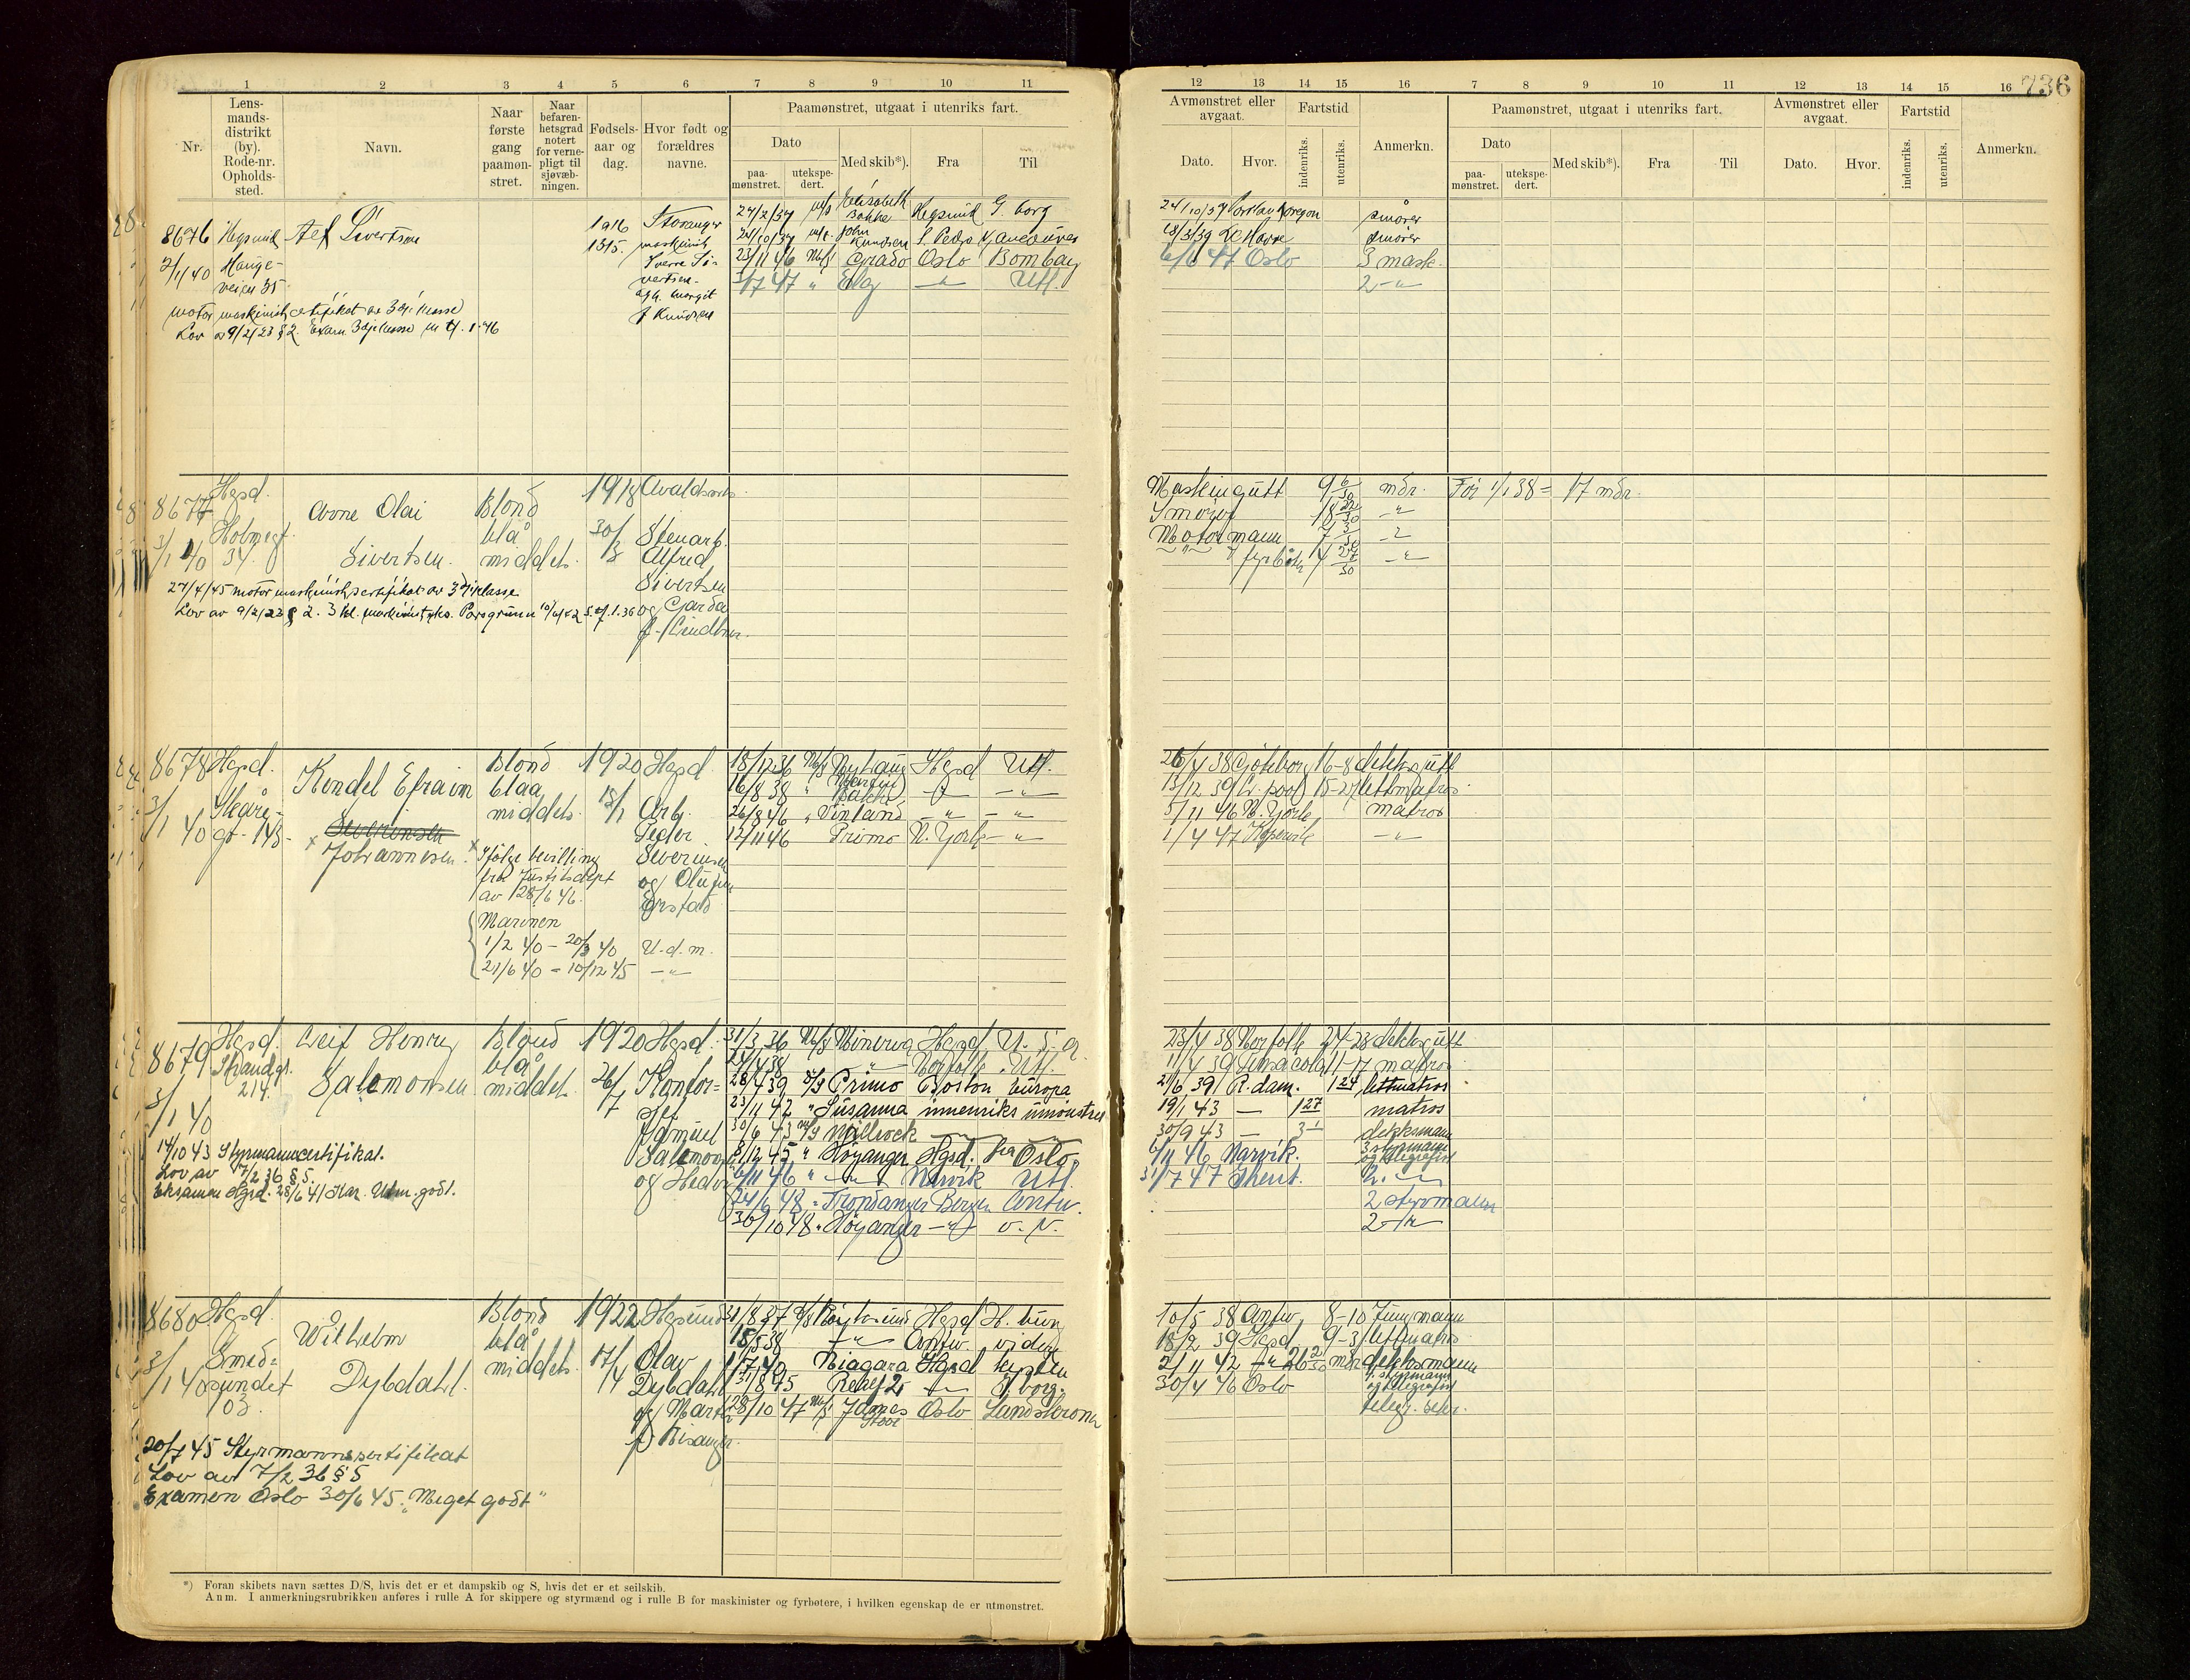 1 2 3 4 5 6 7 8 9 10 11
Nr.
Lens-
mands-
distrikt
(by).
Rode-nr.
Opholds-
sted.
Navn.
Naar
første
gang
paamøn-
stret.
Naar
befaren-
hetsgrad
notert
for verne-
pligt til
sjøvæb-
ningen.
Fødsels-
aar og
dag.
Hvor født og
forældres
navne.
Paamønstret, utgaat i utenriks fart.
Dato
paa-
mønstret.
utekspe-
dert.
Med skib*).
Fra
Til
12 13 14 15 16
Avmønstret eller
avgaat.
Dato.
Hvor.
Fartstid
indenriks.
utenriks.
Anmerkn.
7 8 9 10 11 12 13 14 15 16
736
Paamønstret, utgaat i utenriks fart.
Dato
paa-
mønstret.
utekspe-
dert.
Med skib*).
Fra
Til
Avmønstret eller
avgaat.
Dato.
Hvor.
Fartstid
indenriks.
utenriks.
Anmerkn.
8676
Sivertsen
1916
Stavanger
maskinist
Sverre Si-
vertsen
og Margit
f Knudsen
Hauge-
veien 35
motor maskinistcertifikat av 3dje klasse
Lov av 9/2/23 § 2.
24/2/37 M/S Elisabeth Bakke G. borg
24/10/37 John Knudsen S. Pedro
23/11 46 M/S Grado Oslo Bombay
47 " Elg Utl.
24/10/37 Portland Oregon smører
18/3/39 Le Havre smører
6/6 47 Oslo 3 mask.
2 -"-
8677 Hgsd.
Arne Olai
Sivertsen
Blond
blå
middels
1918
Avaldsnes
Stenarb.
Alfred
Sivertsen
og Garda
34.
27/4/45 motormaskinistsertifikat av 3dje klasse
Lov av 9/2/23 § 2.
Maskingutt 9 6/30 mdr. Før 1/1 38 = 17 mdr.
Smører 18 -"-
Motormann 7 -"-
fyrbøter 4 27/30 -"-
8678 Hgsd.
3/1 40
Skåre-
gt. 148.
Kondel Efraim
x Johannesen.
Blond
blaa
middels
1920 Hgsd.
Arb.
Peder
Severinsen
og Olufine
Ørstad
x Ifølge bevilling
fra Justisdept
av 28/6 46.
Marinen
1/2 40 - 20/3 40 U.d.m.
21/6 40 - 10/12 45 -"-
18/12 36 M/S Nyhaug Hgsd Utl.
16/8 38 " Martin Bakke -"- -"-
26/8 46 " Vinland -"- -"-
12/11 46 Primo N. York -"-
26/4 38 Göteborg 16-8 dekksgutt
13/12 39 L. pool 15-27 lettmatros
5/11 46 N. York matros
1/4 47 Kopervik -"-
8679 Hgsd.
Strandgt.
214.
3/1 40
Leif Henry
Salomonsen
Blond
blå
middels
1920
26/7
Hgsd.
Kontor-
sjef
Samuel
Salomonsen
og Hedvig
14/10 43 Styrmanncertifikat.
Lov av 7/2 36 § 5.
Eksamen Hgsd. 28/6 41 Kar. Utm. godt.
31/3 36 M/S Minerva Hgsd U.S.A.
24/4 38 -"- Norfolk Utl.
28/4 39 D/S Primo Boston Europa
23/11 42 " Susanna innenriks
30/6 43 M/S Willrock
8/12 45 " Høyanger Hgsd. fra Oslo
6/11 46 " -"- Narvik Utl.
24/6 48 " Trondanger Bergen Antw.
30/10 48 " Høyanger -"-
23/4 38 Norfolk 24-28 dekksgutt
11/4 39 Pensacola 11-17 matros
21/6 39 R.dam. 1 24 lettmatros
19/1 43 — 1 27 matros
30/9 43 — 3 1 dekksmann
6/11 46 Narvik. 3 styrmann
og telegrafist
31/7 47 Ghent. 2. -"-
2 styrmann
2 -"-
8680 Hgsd
Smed-
sundet
103.
3/1 40
Wilhelm
Dybdahl.
Blond
blå
middels
1922
17/4
Hgsund
Olav
Dybdahl
og Martha
f. Risanger.
20/7 45 Styrmannssertifikat
Lov av 7/2 36 § 5
Examen Oslo 30/6 45. "Meget godt"
31/8 37 D/S Røytersund Hgsd
18/5 38 -"- Antw. videre
1/7 40 Niagara Hgsd kysten
31/8 45 Relief 2 -"- G.borg.
28/10 47 M/S James Stove Oslo Landskrona
10/5 38 Antw. 8-10 Jungmann
18/2 39 Hgsd. 9-3 lettmatros
2/11 42 -"- mdr dekksmann
styrmann
og telegrafist
30/4 46 Oslo
telegr. sekr.
*) Foran skibets navn sættes D/S, hvis det er et dampskib og S, hvis det er et seilskib.
Anm. I anmerkningsrubrikken anføres i rulle A for skippere og styrmænd og i rulle B for maskinister og fyrbøtere, i hvilken egenskap de er utmønstret.